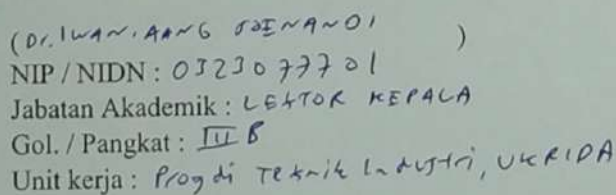 (Dr. IWAN. AANG SOENANDI )
NIP / NIDN : 0323077701
Jabatan Akademik : LEKTOR KEPALA
Gol. / Pangkat : III B
Unit kerja : Progdi Teknik Industri, UKRIDA